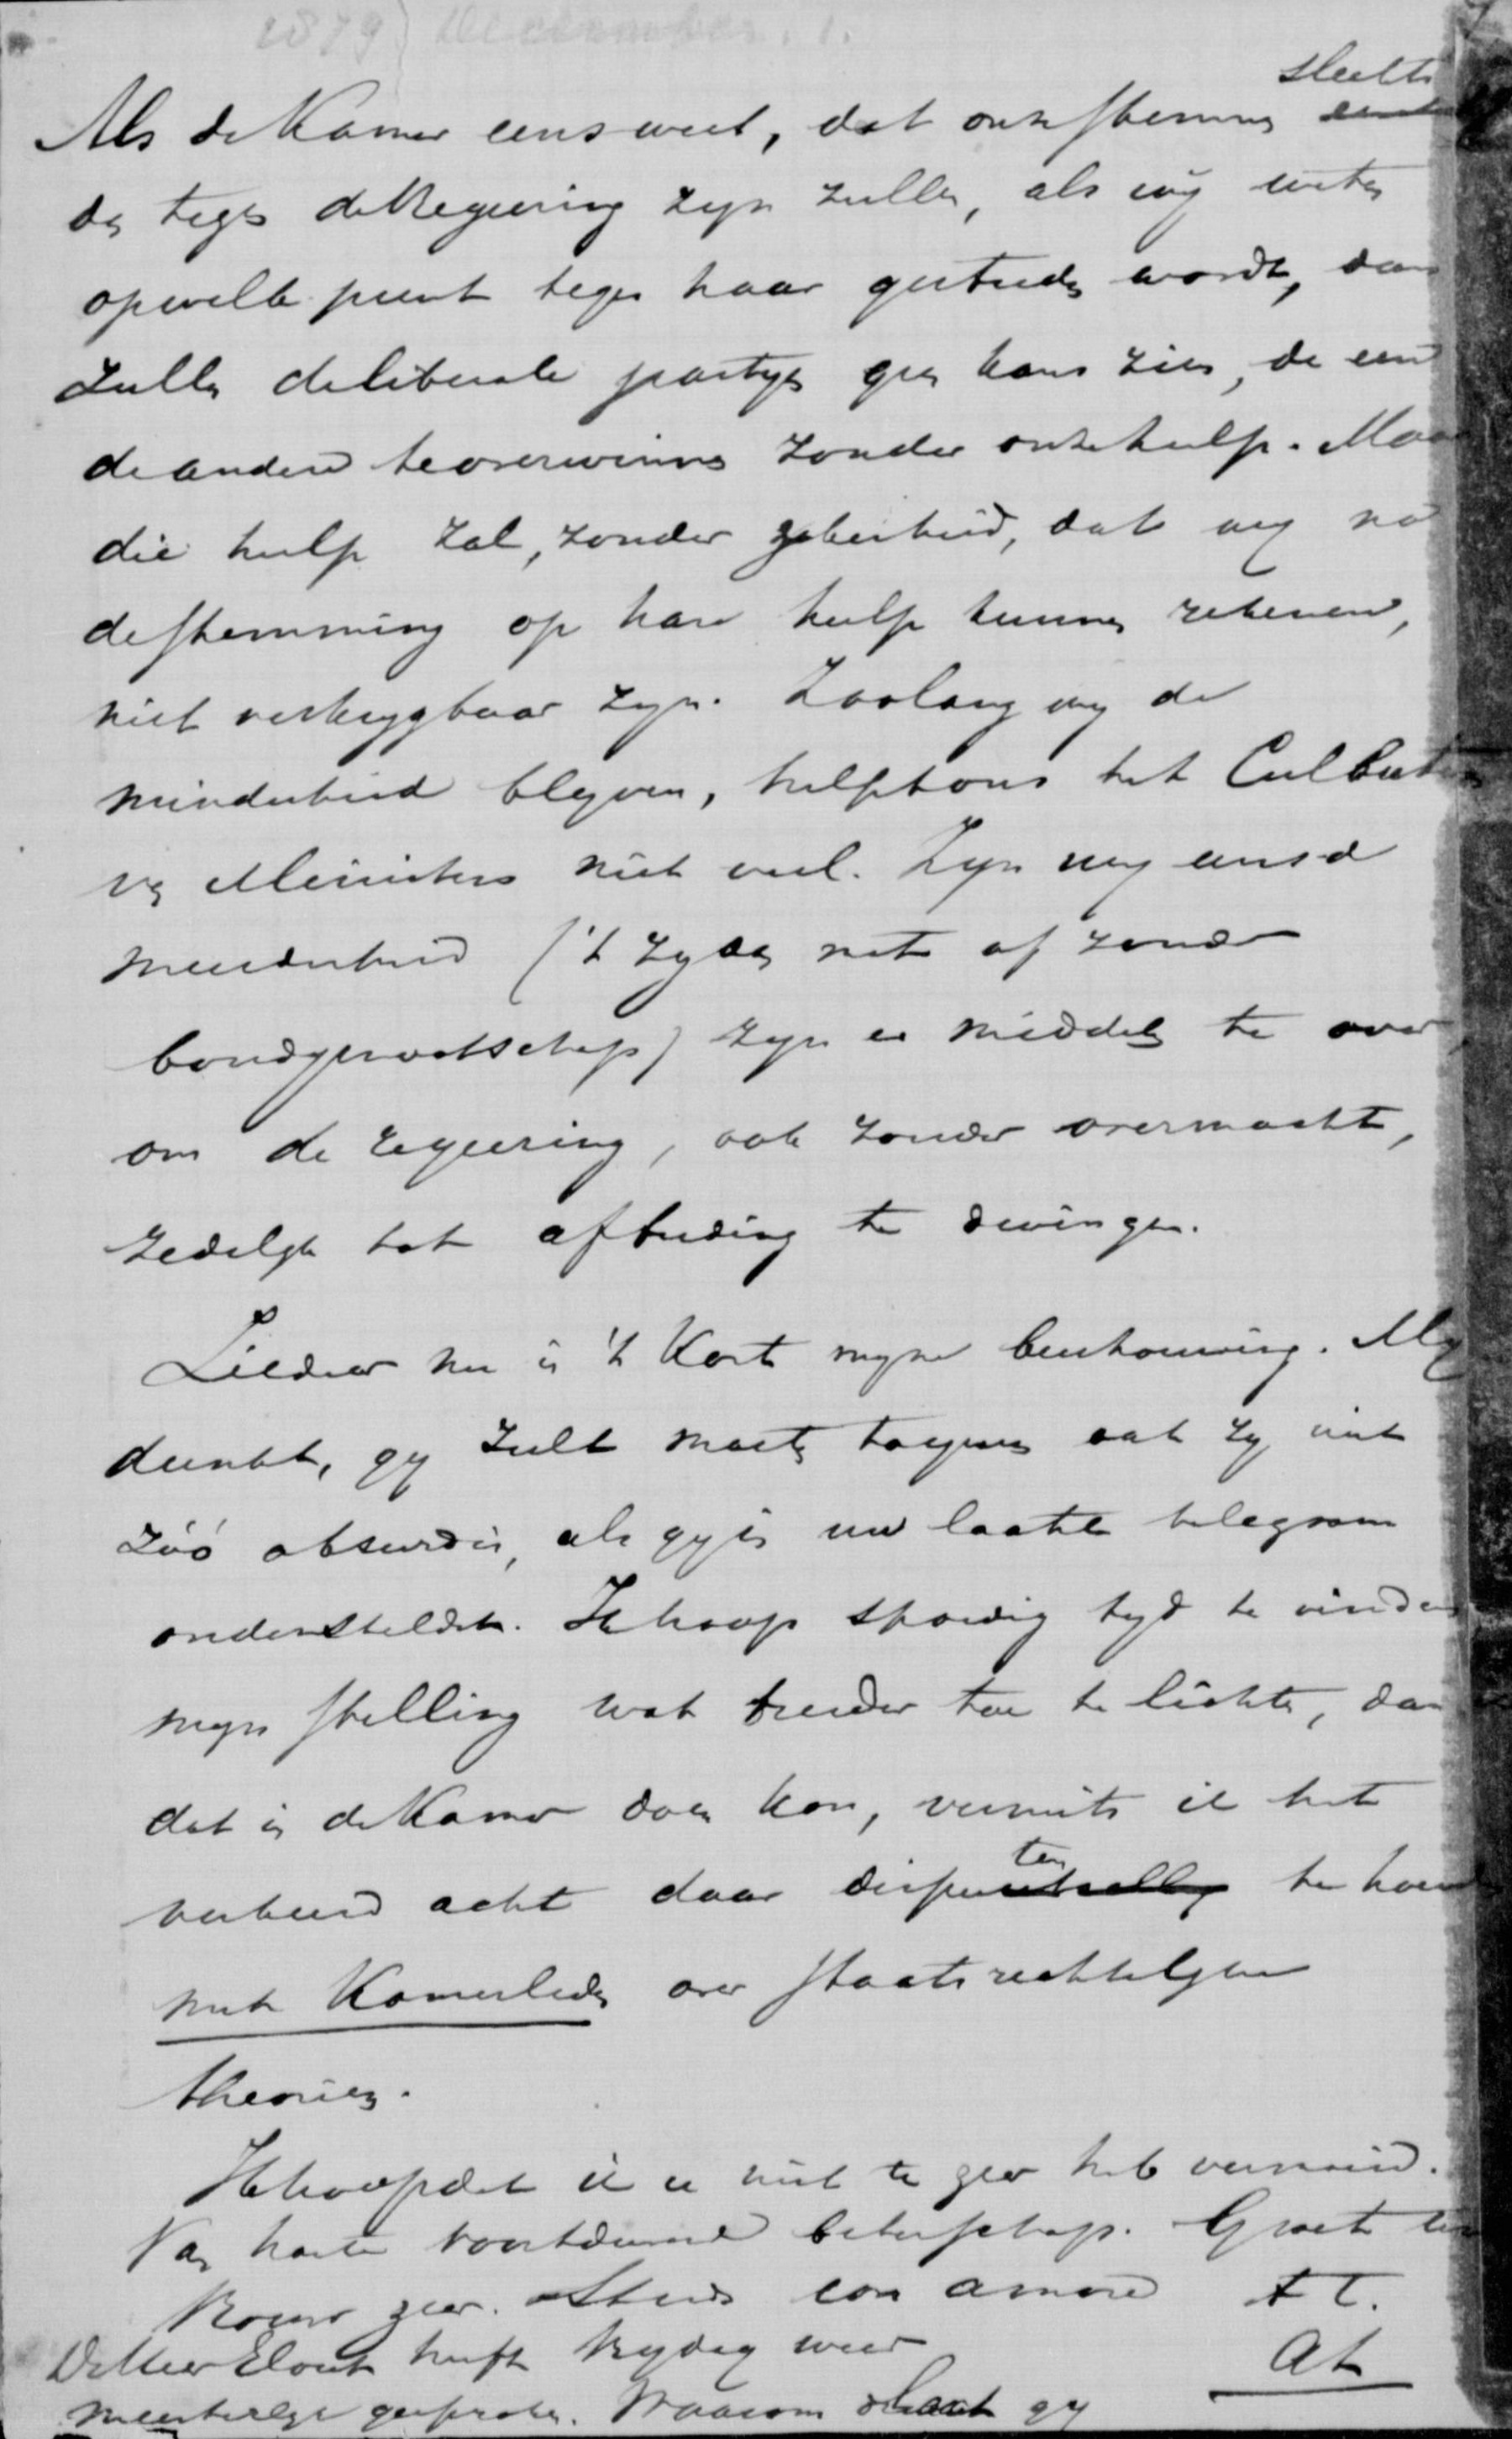 1879 December. 1.
slechts
Als de Kamer eens weet, dat onze stemmen
dan tegen de Regering zyn zullen, als wy weten
op welk punt tegen haar gestreden wordt, dan
zullen de liberale partyen geen kans zien, de een
de andere te overwinnen zonder onze hulp. Maar
die hulp zal, zonder zekerheid, dat wy na
de stemming op hare hulp kunnen rekenen,
niet verkrygbaar zyn. Zoolang wy de
minderheid blyven, helpt ons het Culbuten
van Ministers niet veel. Zyn wy eens de
meerderheid ('t zy dan met of zonder
bondgenootschap) zyn er middelen te over
om de regeering, ook zonder overmacht,
zedelyk tot aftreding te dwingen.
Ziedaar nu in 't Kort myne beschouwing. My
dunkt, gy zult moeten toegeven dat zy niet
zóó absurd is, als gy in uw laatste telegram
onderstelde. Ik hoop spoedig tyd te vinden
myn stelling wat breeder toe te lichten, dan
dat in de Kamer doen kon, vermits ik het
verkeerd acht daar disputen te houden
met Kamerleden over staatsrechtelyke
theoriën.
Ik hoop dat ik u niet te zeer heb vermoeid.
Van harte voortdurend beterschap. Groet uw
Vrouw zeer. Steeds con amore t t.
De Heer Elout heeft Vrydag weer
meesterlyk gesproken. Waarom slaat gy